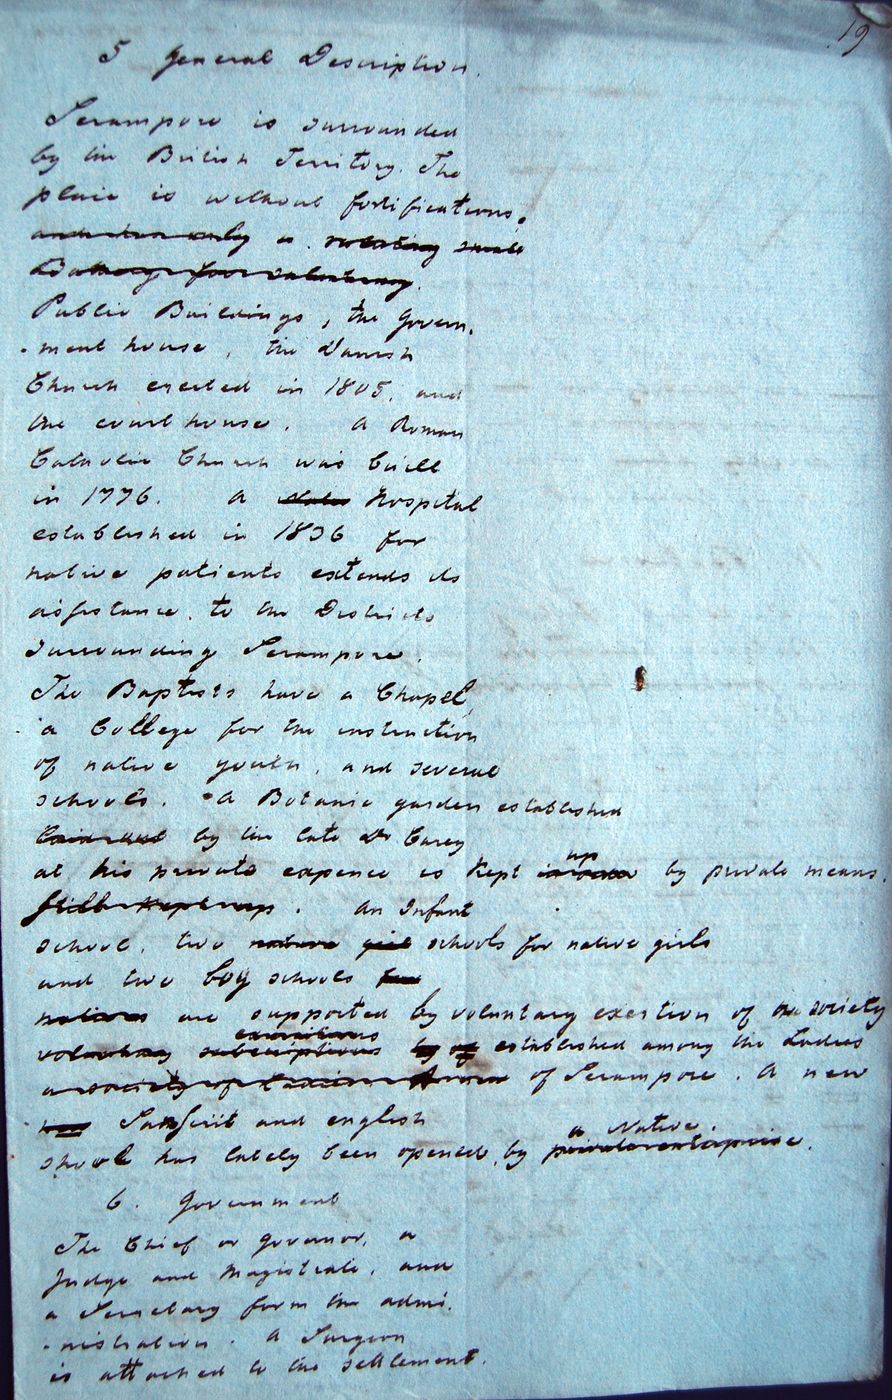 19
5 General Description.
Serampore is surrounded
by the British Territory. The
place is without fortifications.
and has only a saluting small
Battery for saluting.
Public Buildings, the Govern,
-ment house, the Danish
Church erected in 1805, and
the court house. A Roman
Catholic Church was built
in 1776. A Hospital
established in 1836 for
native patients extends its
assistance to the Districts
surrounding Serampore.
The Baptists have a Chapel,
a College for the instruction
of native youth, and several
schools. A Botanic garden established
laid out by the late Dr Carey
at his private expence is kept up by private means.
still kept up. An Infant
school, two native girl schools for native girls
and two boy schools for
natives are supported by voluntary exertion of the society
exertions
voluntary subscriptions by of established among the Ladies
a society of Ladies of Serampore. A new
Sanscrit and english
a Native
school has lately been opened by private enterprise.
6. Government
The Chief or Governor, a
Judge and Magistrate, and
a Secretary form the admi-
-nistration. A Surgeon
is attached to the settlement.